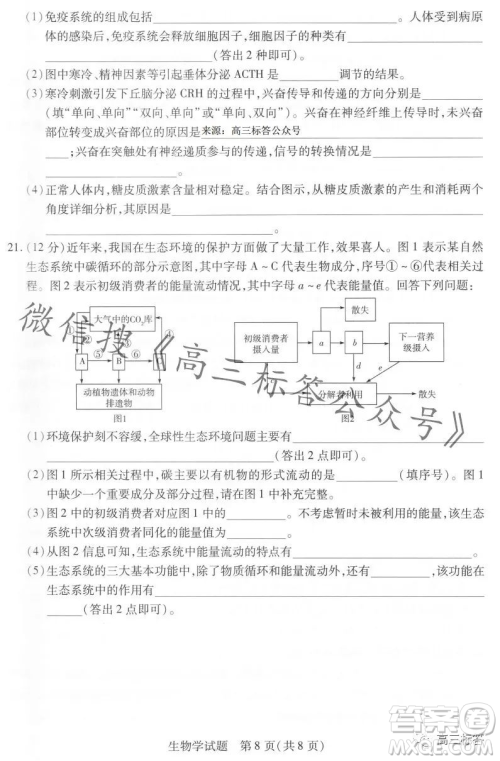 (1)免疫系统的组成包括______。人体受到病原
体的感染后,免疫系统会释放细胞因子,细胞因子的种类有______
______(答出2种即可)。
(2)图中寒冷、精神因素等引起垂体分泌ACTH是______调节的结果。
(3)寒冷刺激引发下丘脑分泌CRH的过程中,兴奋传导和传递的方向分别为______
(填“单向、单向”“双向、单向”或“双向、双向”)。兴奋在神经纤维上传导时,未兴奋
部位转变成兴奋部位的机制是来源:高三标答公众号
______;兴奋在突触处有神经递质参与的传递,信号的转换情况为
______。
(4)正常人体内,糖皮质激素的含量相对稳定。结合图示,从糖皮质激素的产生和消耗两个
角度详细分析,其原因是______
______。
21.(12分)近年来,我国在生态环境的保护方面做了大量工作,效果喜人。图1表示某自然
生态系统中碳循环的部分示意图,其中字母A~C代表生物成分,序号①~⑥代表相关过
程。图2表示初级消费者的能量流动情况,其中字母a~e代表能量值。回答下列问题:
大气中的CO₂库
① ② ③
A ⑤ B ⑥
动植物遗体和动物
排遗物
图1
散失
初级消费者
摄入量
a
b
下一营养
级摄入
d
e
分解者利用
散失
图2
微信搜《高三标答公众号》
(1)环境保护刻不容缓,全球性生态环境问题主要有______
______(答出2点即可)。
(2)图1所示相关过程中,碳主要以有机物的形式流动的是______(填序号)。图1
中缺少一个重要的过程,请在图1中补充完整。
(3)图2中的初级消费者对应图1中的______。不考虑暂时未被利用的能量,该生态
系统中次级消费者同化的能量值为______。
(4)从图2信息可知,生态系统中能量流动的特点有______。
(5)生态系统的三大基本功能中,除了物质循环和能量流动外,还有______,该功能在
生态系统中的作用有______
______(答出2点即可)。
生物学试题 第8页(共8页)
答案圈
高三标答